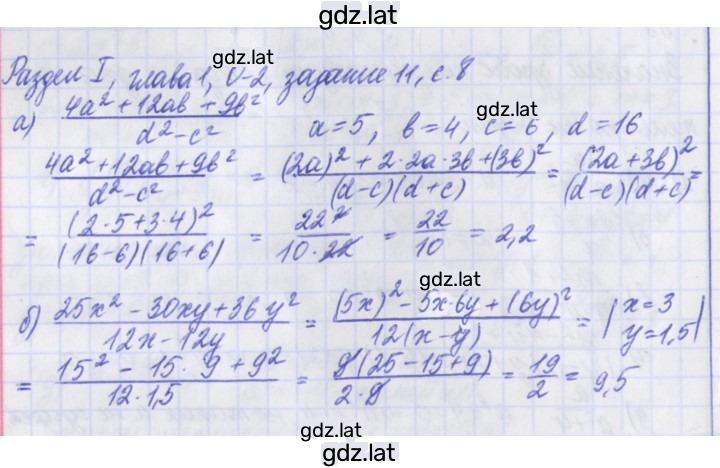 gdz.lat
gdz.lat
Раздел I, глава 1, О-2, задание 11, с. 8
а) (4a² + 12ab + 9b²)/(d² - c²)   a = 5, b = 4, c = 6, d = 16
gdz.lat
(4a² + 12ab + 9b²)/(d² - c²) = ((2a)² + 2·2a·3b + (3b)²)/((d-c)(d+c)) = (2a+3b)²/((d-c)(d+c)) =
gdz.lat
= (2·5+3·4)²/((16-6)(16+6)) = 22²/(10·22) = 22/10 = 2,2
gdz.lat
gdz.lat
б) (25x² - 30xy + 36y²)/(12x - 12y) = ((5x)² - 5x·6y + (6y)²)/(12(x-y)) = | x = 3 y = 1,5 |
= (15² - 15·9 + 9²)/(12·1,5) = 9(25-15+9)/(2·9) = 19/2 = 9,5
gdz.lat
gdz.lat
gdz.lat